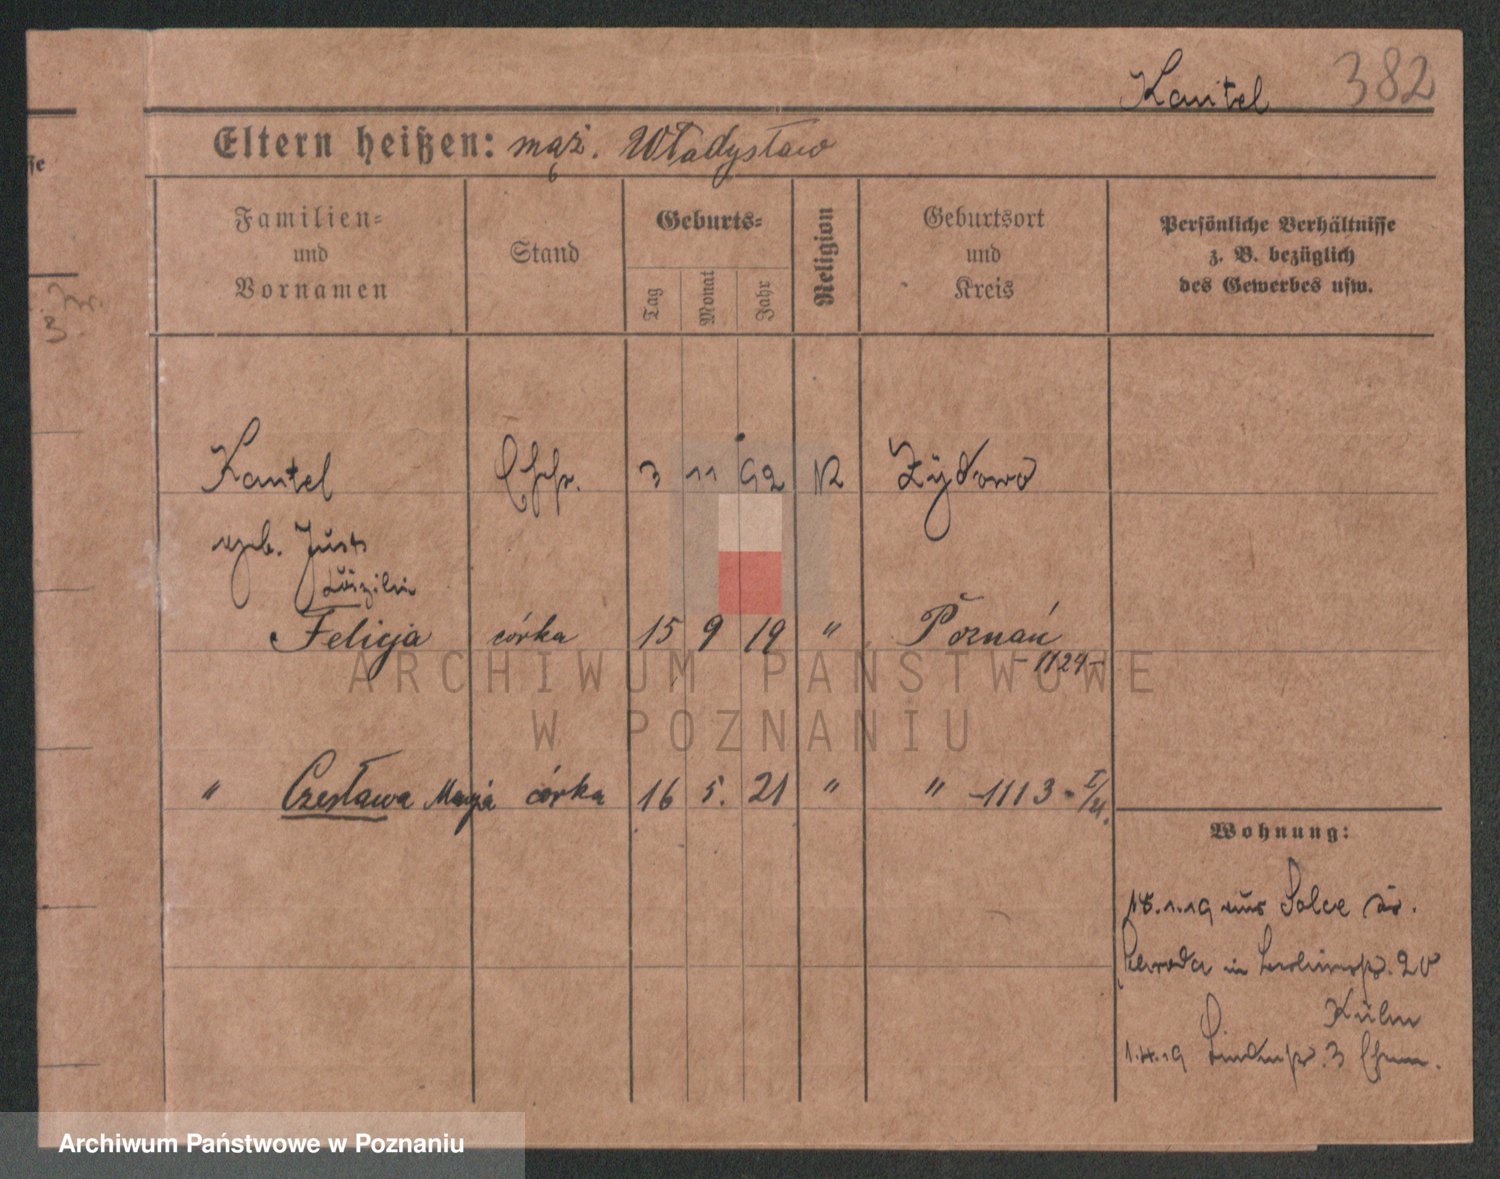 Kantel 382
Eltern heißen: mąż. Władysław
Familien-
und
Vornamen
Stand
Geburts-
Tag
Monat
Jahr
Religion
Geburtsort
und
Kreis
Persönliche Verhältnisse
z. B. bezüglich
des Gewerbes usw.
Kantel 3 11 92 Żydowo
geb. Just
Felicja córka 15 9 19 " Poznań
-1124-
" Czesława Marja córka 16 5. 21 " " -1113-
Wohnung:
aus
in 20
Kulm
3
ARCHIWUM PAŃSTWOWE
W POZNANIU
Archiwum Państwowe w Poznaniu